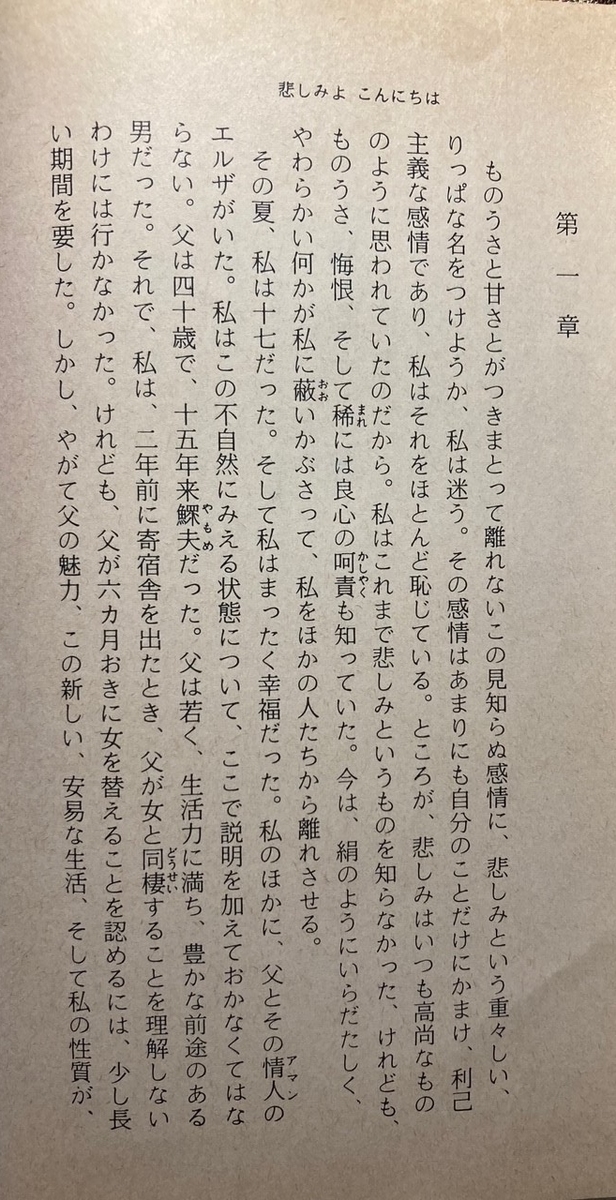 悲しみよ こんにちは
第一章
ものうさと甘さとがつきまとって離れないこの見知らぬ感情に、悲しみという重々しい、
りっぱな名をつけようか、私は迷う。その感情はあまりにも自分のことだけにかまけ、利己
主義な感情であり、私はそれをほとんど恥じている。ところが、悲しみはいつも高尚なもの
のように思われていたのだから。私はこれまで悲しみというものを知らなかった、けれども、
ものうさ、悔恨、そして稀まれには良心の呵責かしやくも知っていた。今は、絹のようにいらだたしく、
やわらかい何かが私に蔽おおいかぶさって、私をほかの人たちから離れさせる。
その夏、私は十七だった。そして私はまったく幸福だった。私のほかに、父とその情人アマンの
エルザがいた。私はこの不自然にみえる状態について、ここで説明を加えておかなくてはな
らない。父は四十歳で、十五年来鰥夫やもめだった。父は若く、生活力に満ち、豊かな前途のある
男だった。それで、私は、二年前に寄宿舎を出たとき、父が女と同棲どうせいすることを理解しない
わけには行かなかった。けれども、父が六カ月おきに女を替えることを認めるには、少し長
い期間を要した。しかし、やがて父の魅力、この新しい、安易な生活、そして私の性質が、